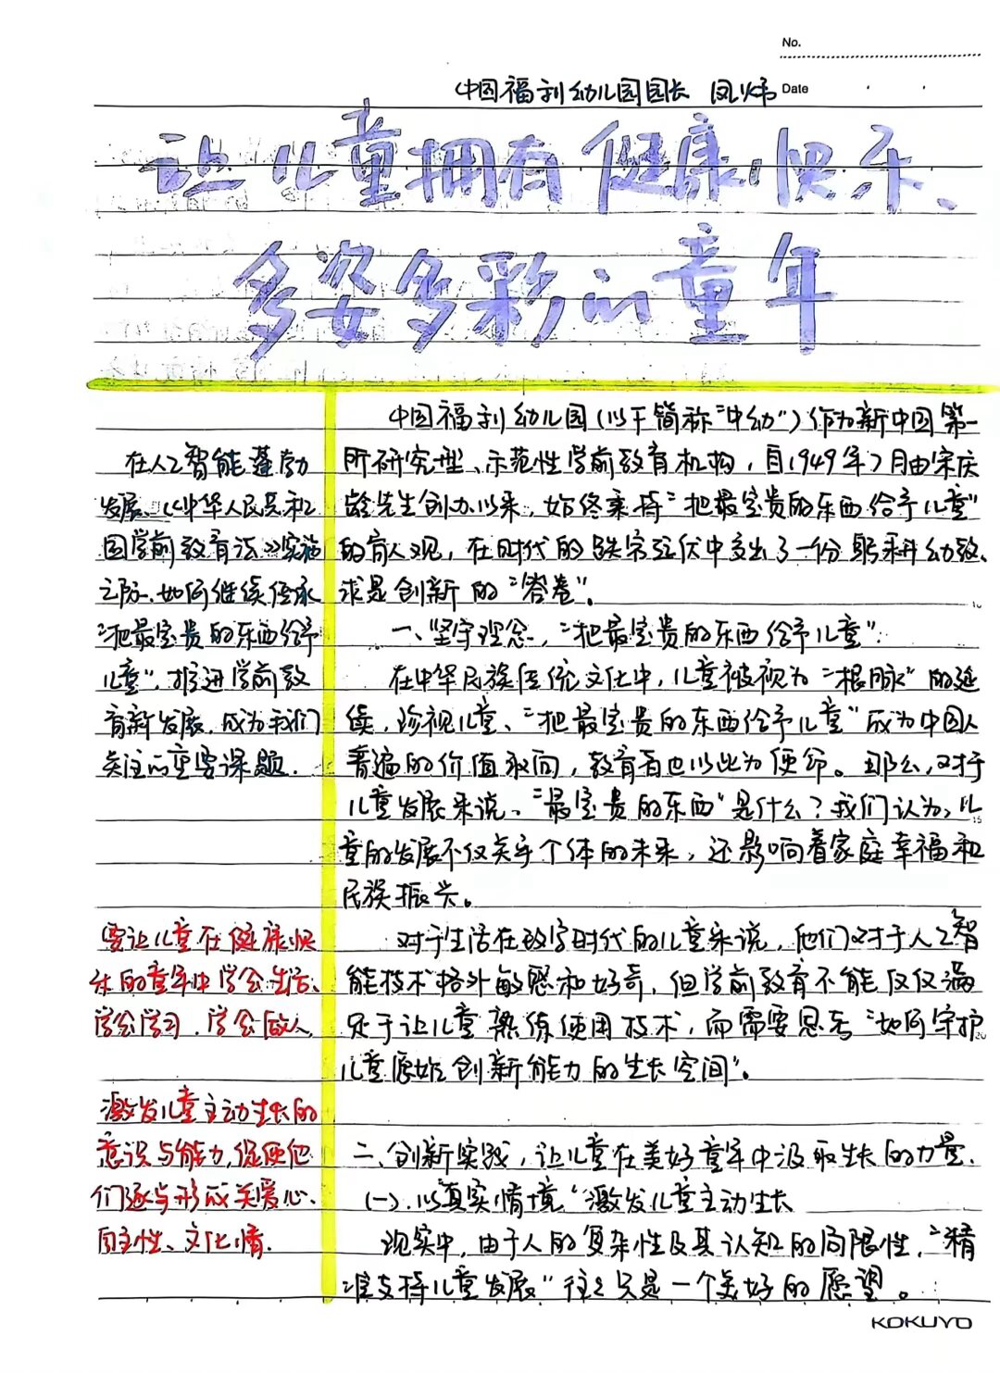 No.
Date
中国福利幼儿园园长 凤炜
让儿童拥有健康、快乐、
多姿多彩的童年
在人工智能蓬勃
发展、《中华人民共和
国学前教育法》实施
之际,如何继续传承
“把最宝贵的东西给予
儿童”,推进学前教
育新发展,成为我们
关注的重要课题.
要让儿童在健康快
乐的童年中学会生活、
学会学习、学会做人
激发儿童主动生长的
意识与能力,促使他
们逐步形成关爱心、
自主性、文化情.
中国福利幼儿园(以下简称“中幼”)作为新中国第一
所研究型、示范性学前教育机构,自1949年7月由宋庆
龄先生创办以来,始终秉持“把最宝贵的东西给予儿童”
的育人观,在时代的跌宕起伏中交出了一份躬耕幼教、
求是创新的“答卷”.
一、坚守理念,“把最宝贵的东西给予儿童”.
在中华民族传统文化中,儿童被视为“根脉”的延
续,珍视儿童、“把最宝贵的东西给予儿童”成为中国人
普遍的价值取向,教育者也以此为使命。那么,对于
儿童发展来说,“最宝贵的东西”是什么?我们认为,儿
童的发展不仅关乎个体的未来,还影响着家庭幸福和
民族振兴。
对于生活在数字时代的儿童来说,他们对于人工智
能技术格外敏感和好奇,但学前教育不能仅仅满
足于让儿童熟练使用技术,而需要思考“如何守护
儿童原始创新能力的生长空间”。
二、创新实践,让儿童在美好童年中汲取生长的力量.
(一).以“真实情境”激发儿童主动生长
现实中,由于人的复杂性及其认知的局限性,“精
准支持儿童发展”往往只是一个美好的愿望。
KOKUYO